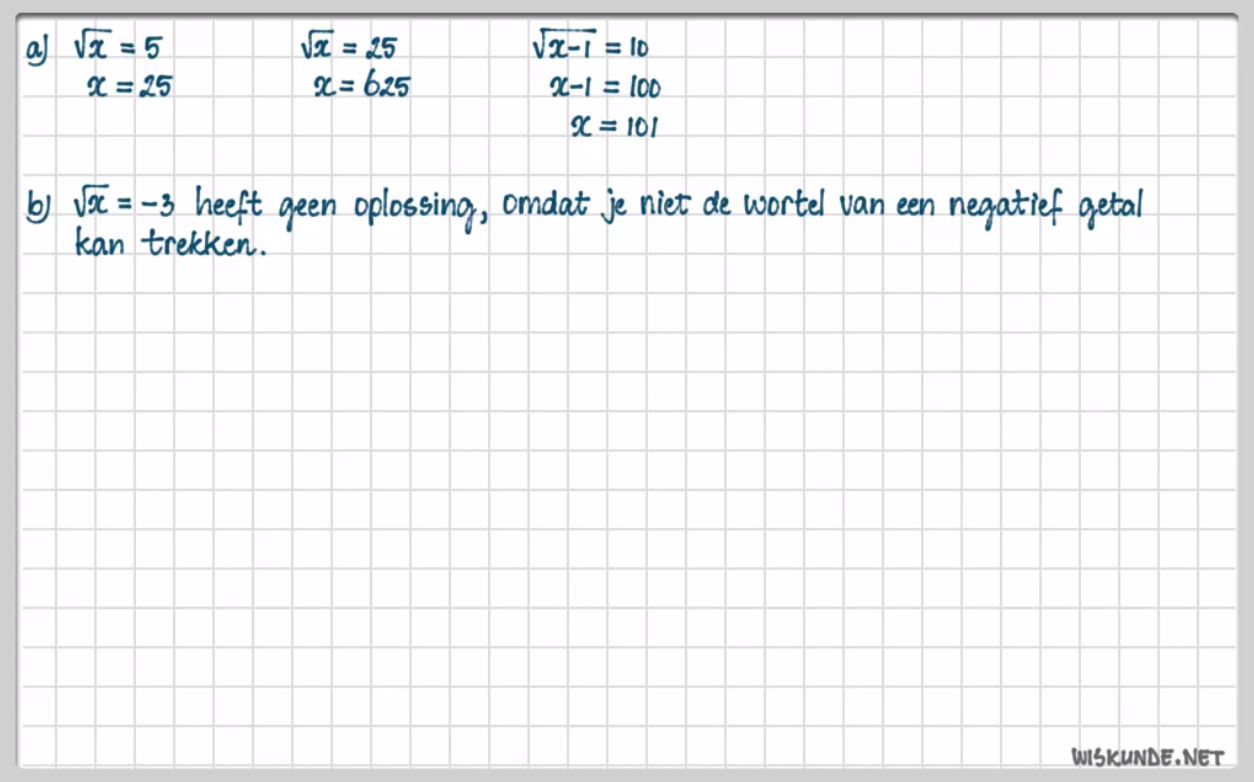 a) √x = 5 √x = 25 √x-1 = 10
x = 25 x = 625 x-1 = 100
x = 101
b) √x = -3 heeft geen oplossing, omdat je niet de wortel van een negatief getal
kan trekken.
WISKUNDE.NET